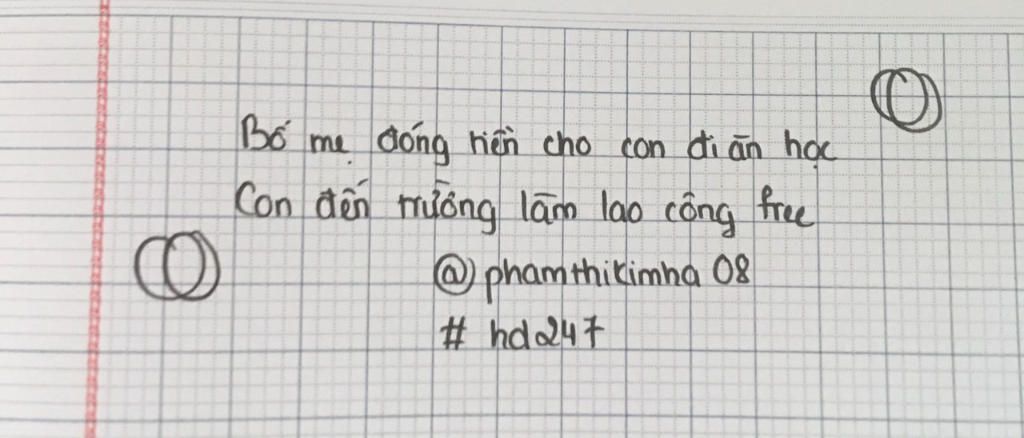 Bố mẹ đóng tiền cho con đi ăn học
Con đến trường làm lao công free
@phamthikimha08
# hd247